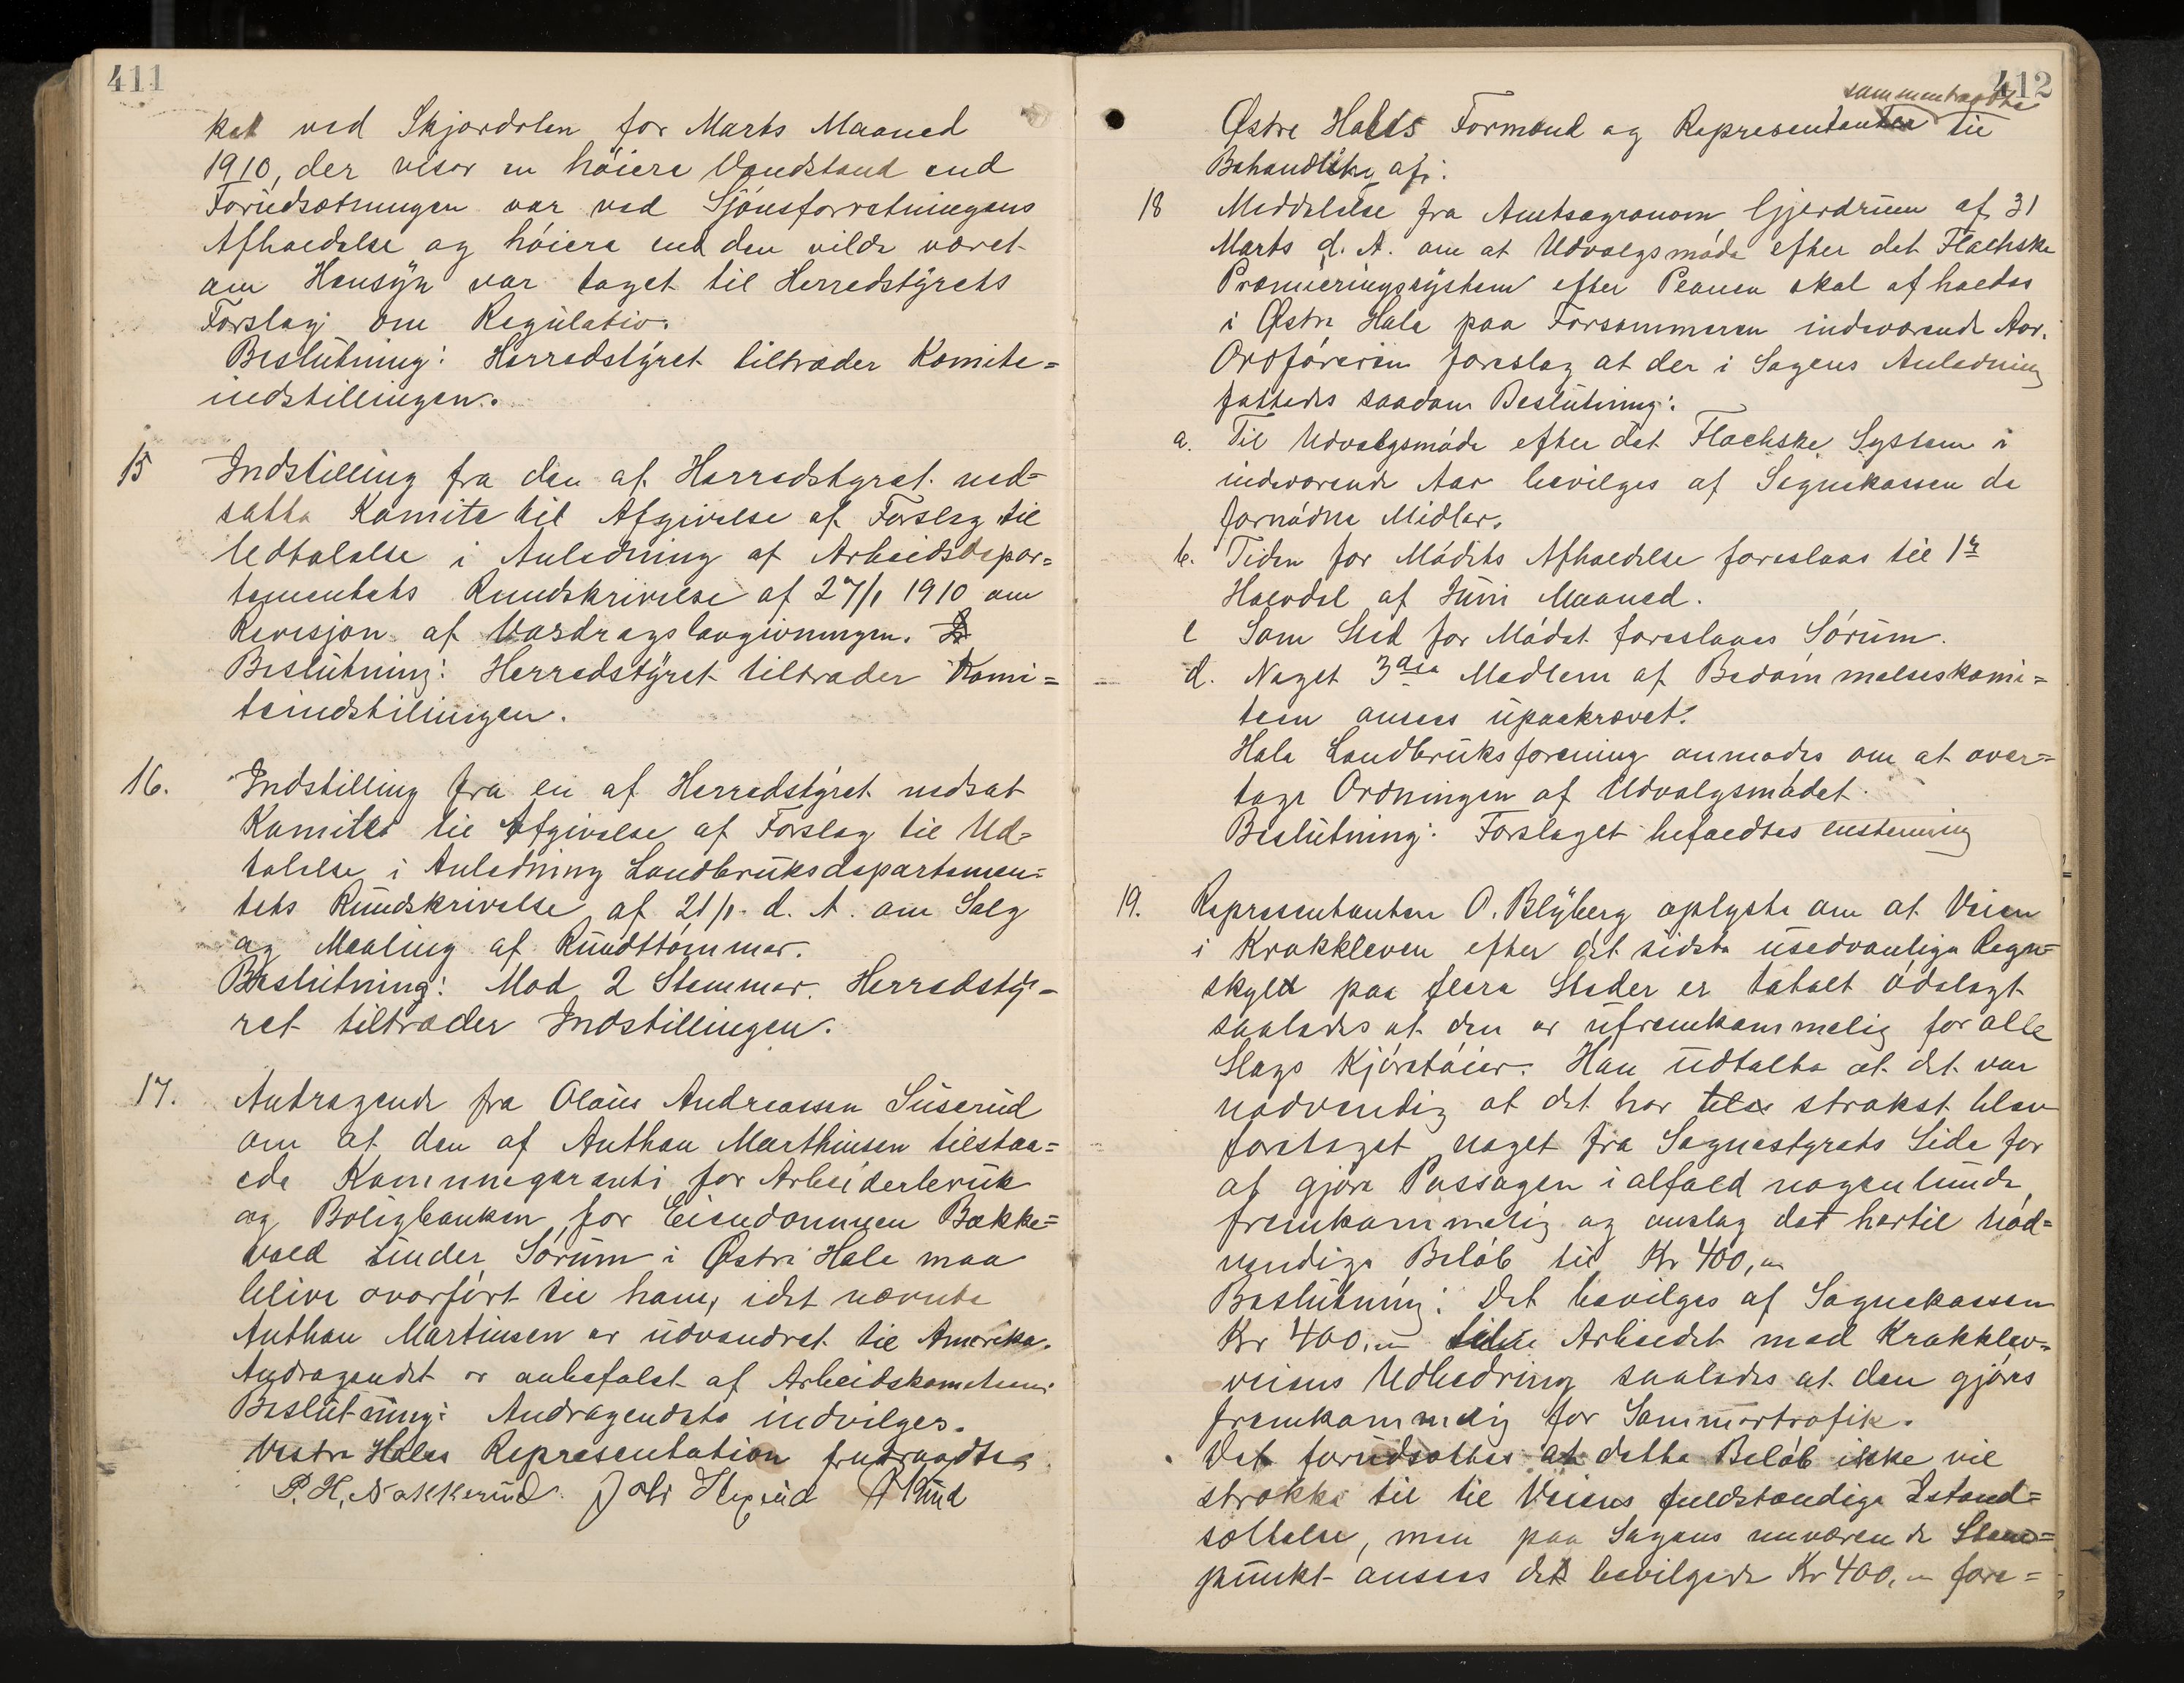 411
ket ved Skjærdalen for Marts Maaned
1910, der viser en höiere Vandstand end
Forudsætningen var ved Skjönsforretningens
Afholdelse og höiere end den vilde været
om Hensyn var taget til Herredstyrets
Forslag om Regulativ.
Beslutning: Herredstyret tiltræder Komite=
indstillingen.
15 Indstilling fra den af Herredstyret ned=
satte Komite til Afgivelse af Forslag til
Udtalelse i Anledning af Arbeidsdepar=
tementets Rundskrivelse af 27/1 1910 om
Revisjon af Vasdragslovgivningen.
Beslutning: Herredstyret tiltræder Komi=
teindstillingen.
16. Indstilling fra en af Herredstyret nedsat
Komite til Afgivelse af Forslag til Ud=
talelse i Anledning Landbruksdepartemen=
tets Rundskrivelse af 21/1 d. A. om Salg
og Maaling af Rundtömmer.
Beslutning: Mod 2 Stemmer. Herredsty=
ret tiltræder Indstillingen.
17. Andragende fra Olaus Andreassen Suserud
om at den af Anthon Marthinsen tilstaa=
ede Kommunegaranti for Arbeiderbruk
og Boligbanken for Eiendommen Bække=
vold under Sörum i Østre Hole maa
blive overfört til ham, idet nævnte
Anthon Martinsen er udvandret til Amerika.
Andragendet er anbefalet af Arbeidskomiteen.
Beslutning: Andragendete indvilges.
Vestre Holes Representation fratraadte.
P. H. Nakkerud. Joh Stixrud
412
sammentraadte
Østre Holes Formænd og Representanter til
Behandling af:
18 Meddelelse fra Amtsagronom Gjerdrum af 31
Marts d. A. om at Udvalgsmöde efter det Flachske
Præmieringssystem efter Planen skal afholdes
i Østre Hole paa Forsommeren indeværende Aar.
Ordföreren foreslog at der i Sagens Anledning
fattedes saadan Beslutning:
a. Til Udvalgsmöde efter det Flachske System i
indeværende Aar bevilges af Sognekassen de
fornödne Midler.
b. Tiden for Mödets Afholdelse foreslaas til 1ste
Halvdel af Juni Maaned.
c Som Sted for Mödet foreslaaes Sörum.
d. Noget 3die Medlem af Bedömmelseskomi=
teen ansees upaakrævet.
Hole Landbruksforening anmodes om at over=
tage Ordningen af Udvalgsmödet.
Beslutning: Forslaget bifaldtes enstemmig
19. Representanten O. Blyberg oplyste om at Veien
i Krokkleven efter det sidste usedvanlige Regn=
skyld paa flere Steder er totalt ödelagt
saaledes at den er ufremkommelig for alle
Slags Kjöretöier. Han udtalte at det var
nødvendig at det her strakst blev
foretaget noget fra Sognestyrets Side for
at gjöre Passagen ialfald nogenlunde
fremkommelig og anslog det hertil nöd=
vendige Belöb til Kr 400,"
Beslutning: Det bevilges af Sognekassen
Kr 400," Arbeidet med Krokklev=
veiens Udbedring saaledes at den gjöres
fremkommelig for Sommertrafik.
Det forudsættes at dette Belöb ikke vil
strække til til Veiens fuldstændige Istand=
sættelse, men paa Sagens nuværende Stand=
punkt ansees det bevilgede Kr 400," fore=